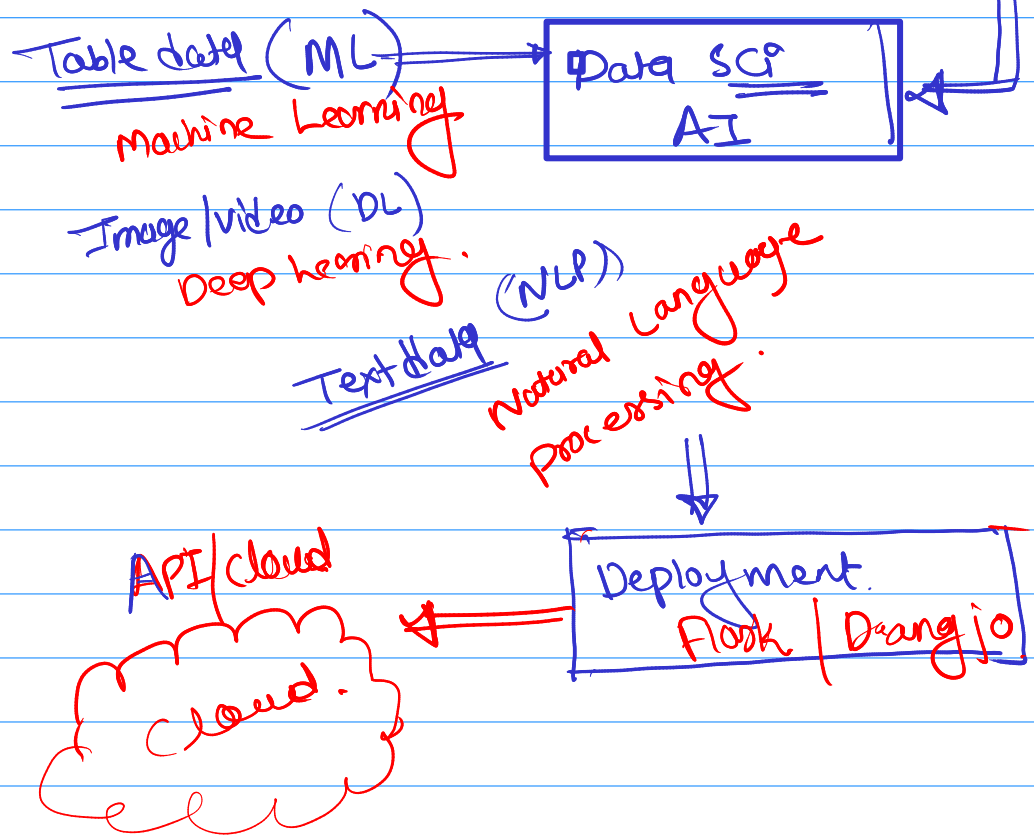 Table data (ML)
Machine Learning
Data Sci
AI
Image/video (DL)
Deep Learning.
(NLP)
Text data
Natural Language
Processing.
Deployment.
Flask / Daangjo
API/cloud
Cloud.